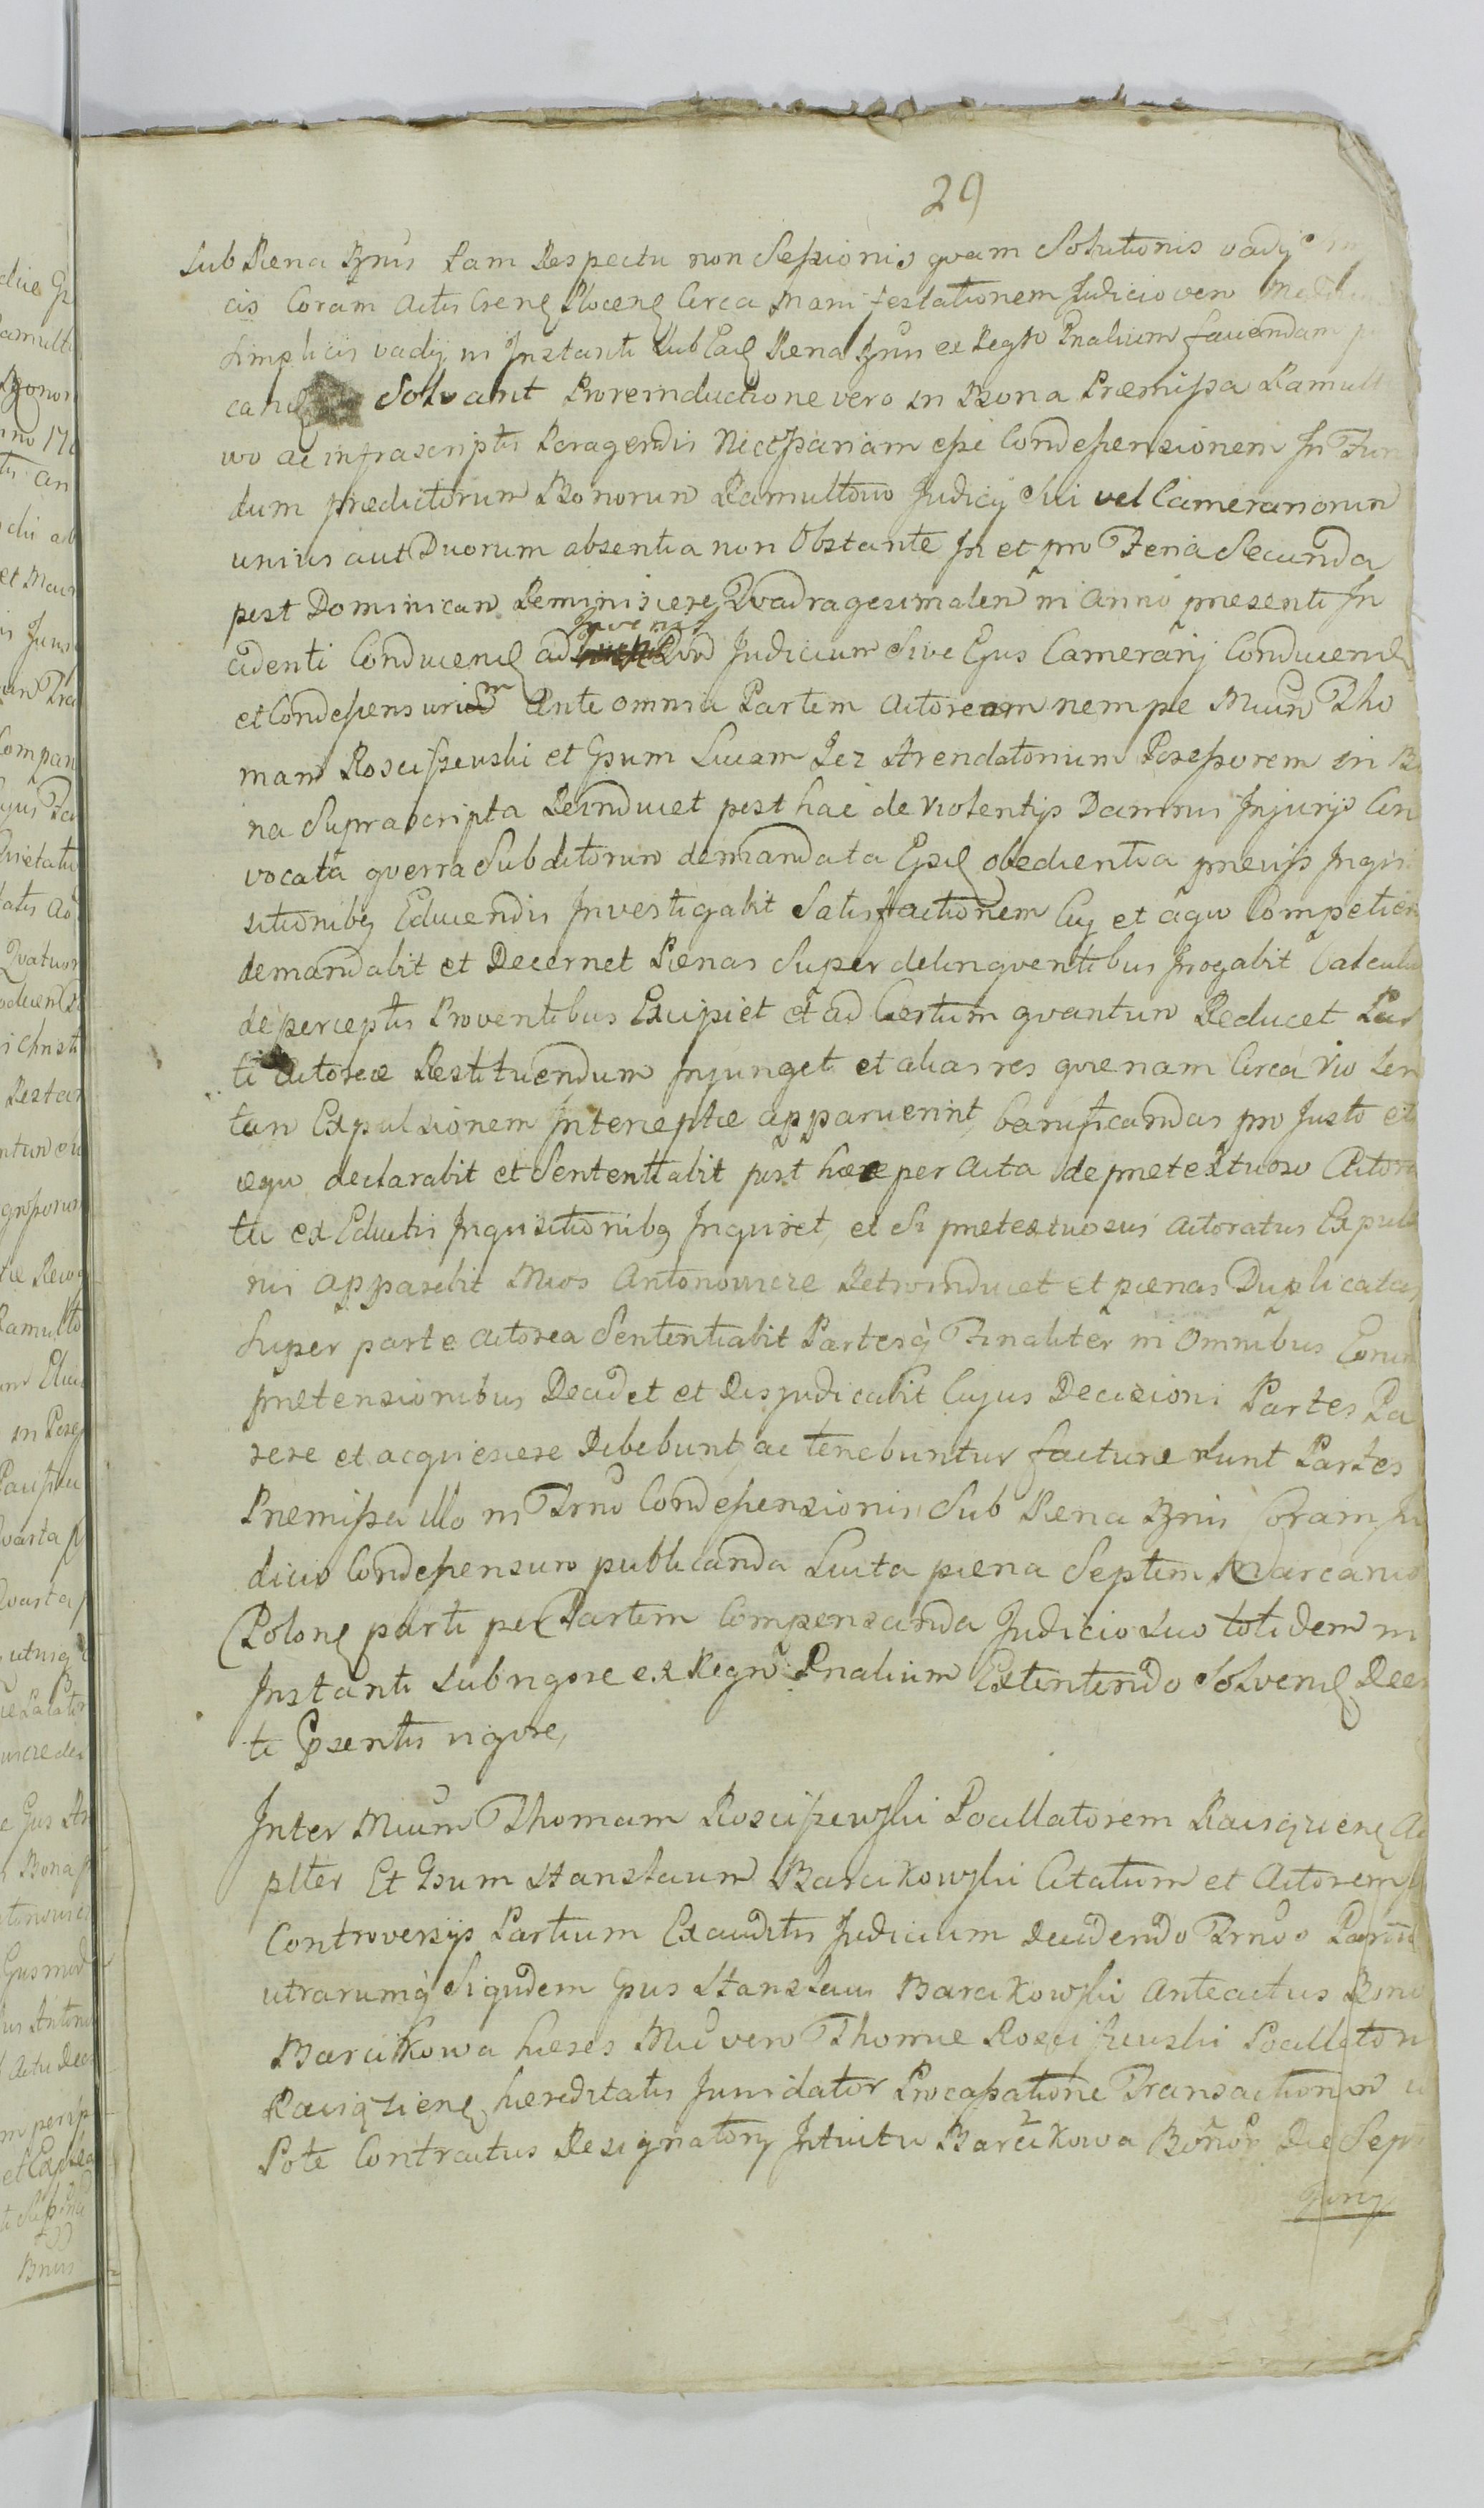 29
Sub Pœna Bnis tam Respectu non Sessionis qvam Solutionis vadij
cis Coram Actis Crens Plocens Circa Manifestationem Judicio vero
simplicis vadij in Instanti Sub Ead Pœna Bnis ex Regro Pnalium faciendam
cand Solvant Pro reinductione vero in Bona Præmissa Ramulto
wo ac infrascriptis Peragendis Necessariam esse Condessensionem In Fun
dum prædictorum Bonorum Ramultowo Judicij Sui vel Camerariorum
unius aut Duorum absentia non Obstante In et pro Feria Secunda
post Dominicam Reminiscere Qvadragesimalem in Anno præsenti In
cidenti Conducend ad Judicium Sive Ejus Camerarij Conducend
et Condessensurium Ante omnia Partem Actoream nempe Mcum Tho
mam Roscissewski et Gsum Lucam Jez Arendatorium Possessorem in Bo
na Suprascripta Reinducet post hac de violentijs Damnis Injurijs Con
vocata qverra Subditorum demandata Ejsd obedientia previjs Inqvi
sitionibq Educendis Investigabit Satisfactionem Cuj et a qvo Competien
demandabit et Decernet Pœnas Super delinqventibus Irogabit Calculum
de perceptis Proventibus Excipiet et ad Certum qvantum Reducet Par
ti Actoreæ Restituendum Injunget et alias res qvænam Circa vio len
tam Expulsionem Interceptæ apparuerint, bonificandas pro Justo et
æqvo declarabit et Sententiabit post hæc per Acta de prætextuoso Actora
tu ex Eductis Inqvisitionibq Inqviret, et Si prætextuosus Actoratus Expuls
nis Apparebit Mcos Antonowicze Retroinducet et pœnas Duplicatas
Super parte Actorea Sententiabit Partesq Finaliter in Omnibus Eorum
prætensionibus Decidet et Disjudicabit Cujus Decisioni Partes Pa
rere et acqviescere Debebunt, ac tenebuntur facturæ sunt Partes
Præmissa illo in Trno Condessensionis Sub Pœna Bnis Coram Ju
dicio Condessensuro publicanda Luita pœna Septem Marcarum
Polons parti per Partem Compensanda Judicio suo totidem in
Instanti sub rigore ex Regro Pnalium Extentendo Solvend Decre
ti Psentis vigore,
Inter Mcum Thomam Roscissewski Pocillatorem Raciązens Ac
plter Et Gsum Stanslaum Barcikowski Citatum et Actorem
Controversijs Partium Exauditis Judicium Decidendo Trnos Partium
utrarumq Siqvidem Gsus Stanslaus Barcikowski Anteactus Bono
Barcikowa hæres Mco vero Thomæ Roscissewski Pocillatori
Raciązens hæreditatis Juris dator Pro cassatione Transactionum u
Pote Contractus Resignatorij Intuitu Barcikowa Bonor Die Sept
Junij